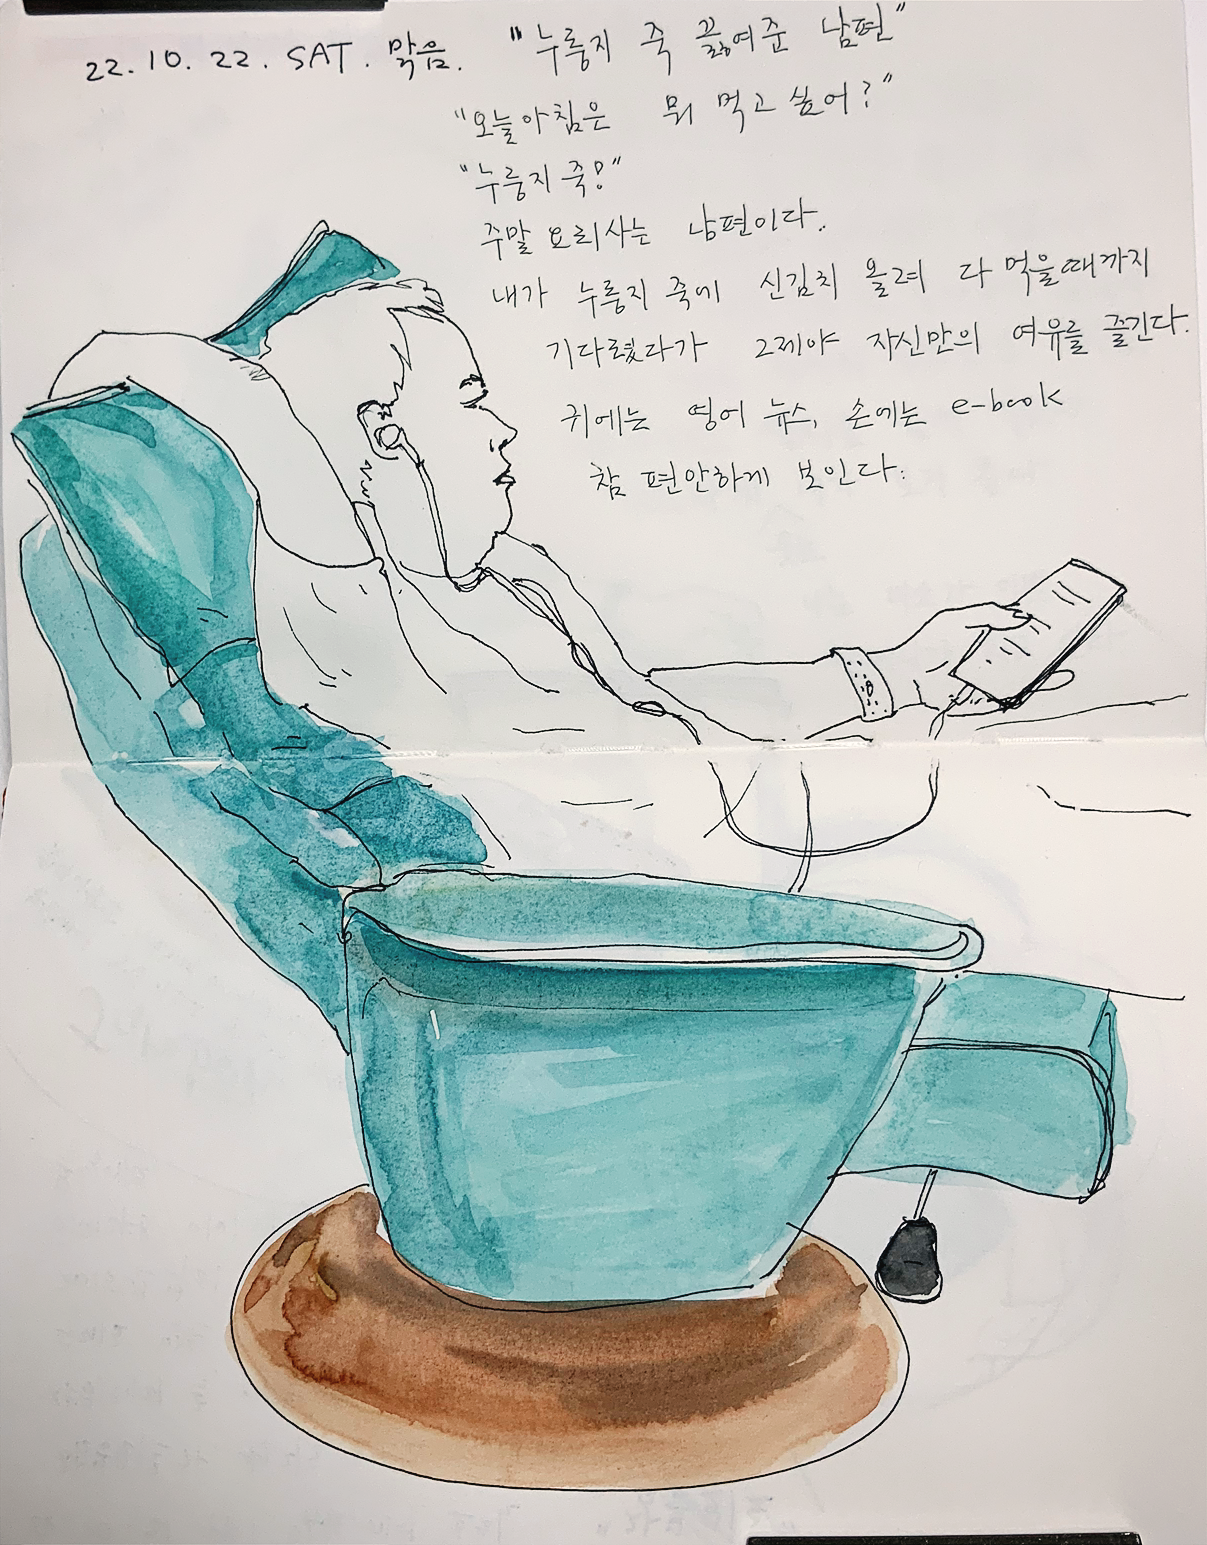 22.10.22. SAT. 맑음. "누룽지 죽 끓여준 남편"
"오늘아침은 뭐 먹고 싶어?"
"누룽지 죽!"
주말 요리사는 남편이다.
내가 누룽지 죽에 신김치 올려 다 먹을때까지
기다렸다가 그제야 자신만의 여유를 즐긴다.
귀에는 영어 뉴스, 손에는 e-book
참 편안하게 보인다.